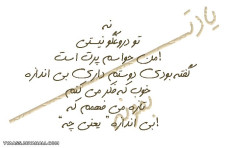 یادت
نه
تو دروغگو نیستی
من حواسم پرت است!
گفته بودی دوستم داری بی اندازه
خوب که فکر می کنم
تازه می فهمم که
"بی اندازه" یعنی چه!
نره